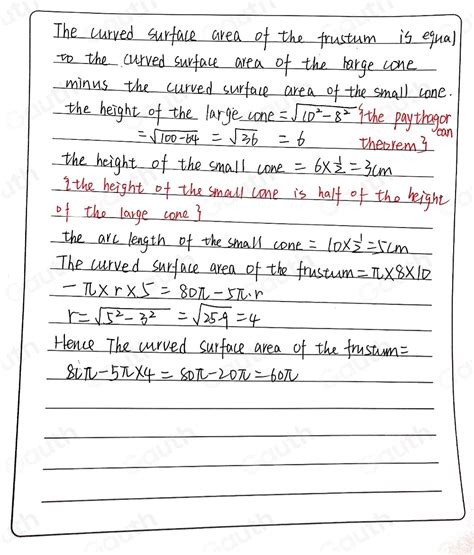 The curved surface area of the frustum is equal
to the curved surface area of the large cone
minus the curved surface area of the small cone.
the height of the large cone = √10²-8² {the paythagor
ean
= √100-64 = √36 = 6 theorem}
the height of the small cone = 6×½ = 3cm
{the height of the small cone is half of the height
of the large cone}
the arc length of the small cone = 10×½ = 5cm
The curved surface area of the frustum = π×8×10
- π×r×5 = 80π - 5π·r
r = √5²-3² = √25-9 = 4
Hence The curved surface area of the frustum =
80π - 5π×4 = 80π - 20π = 60π